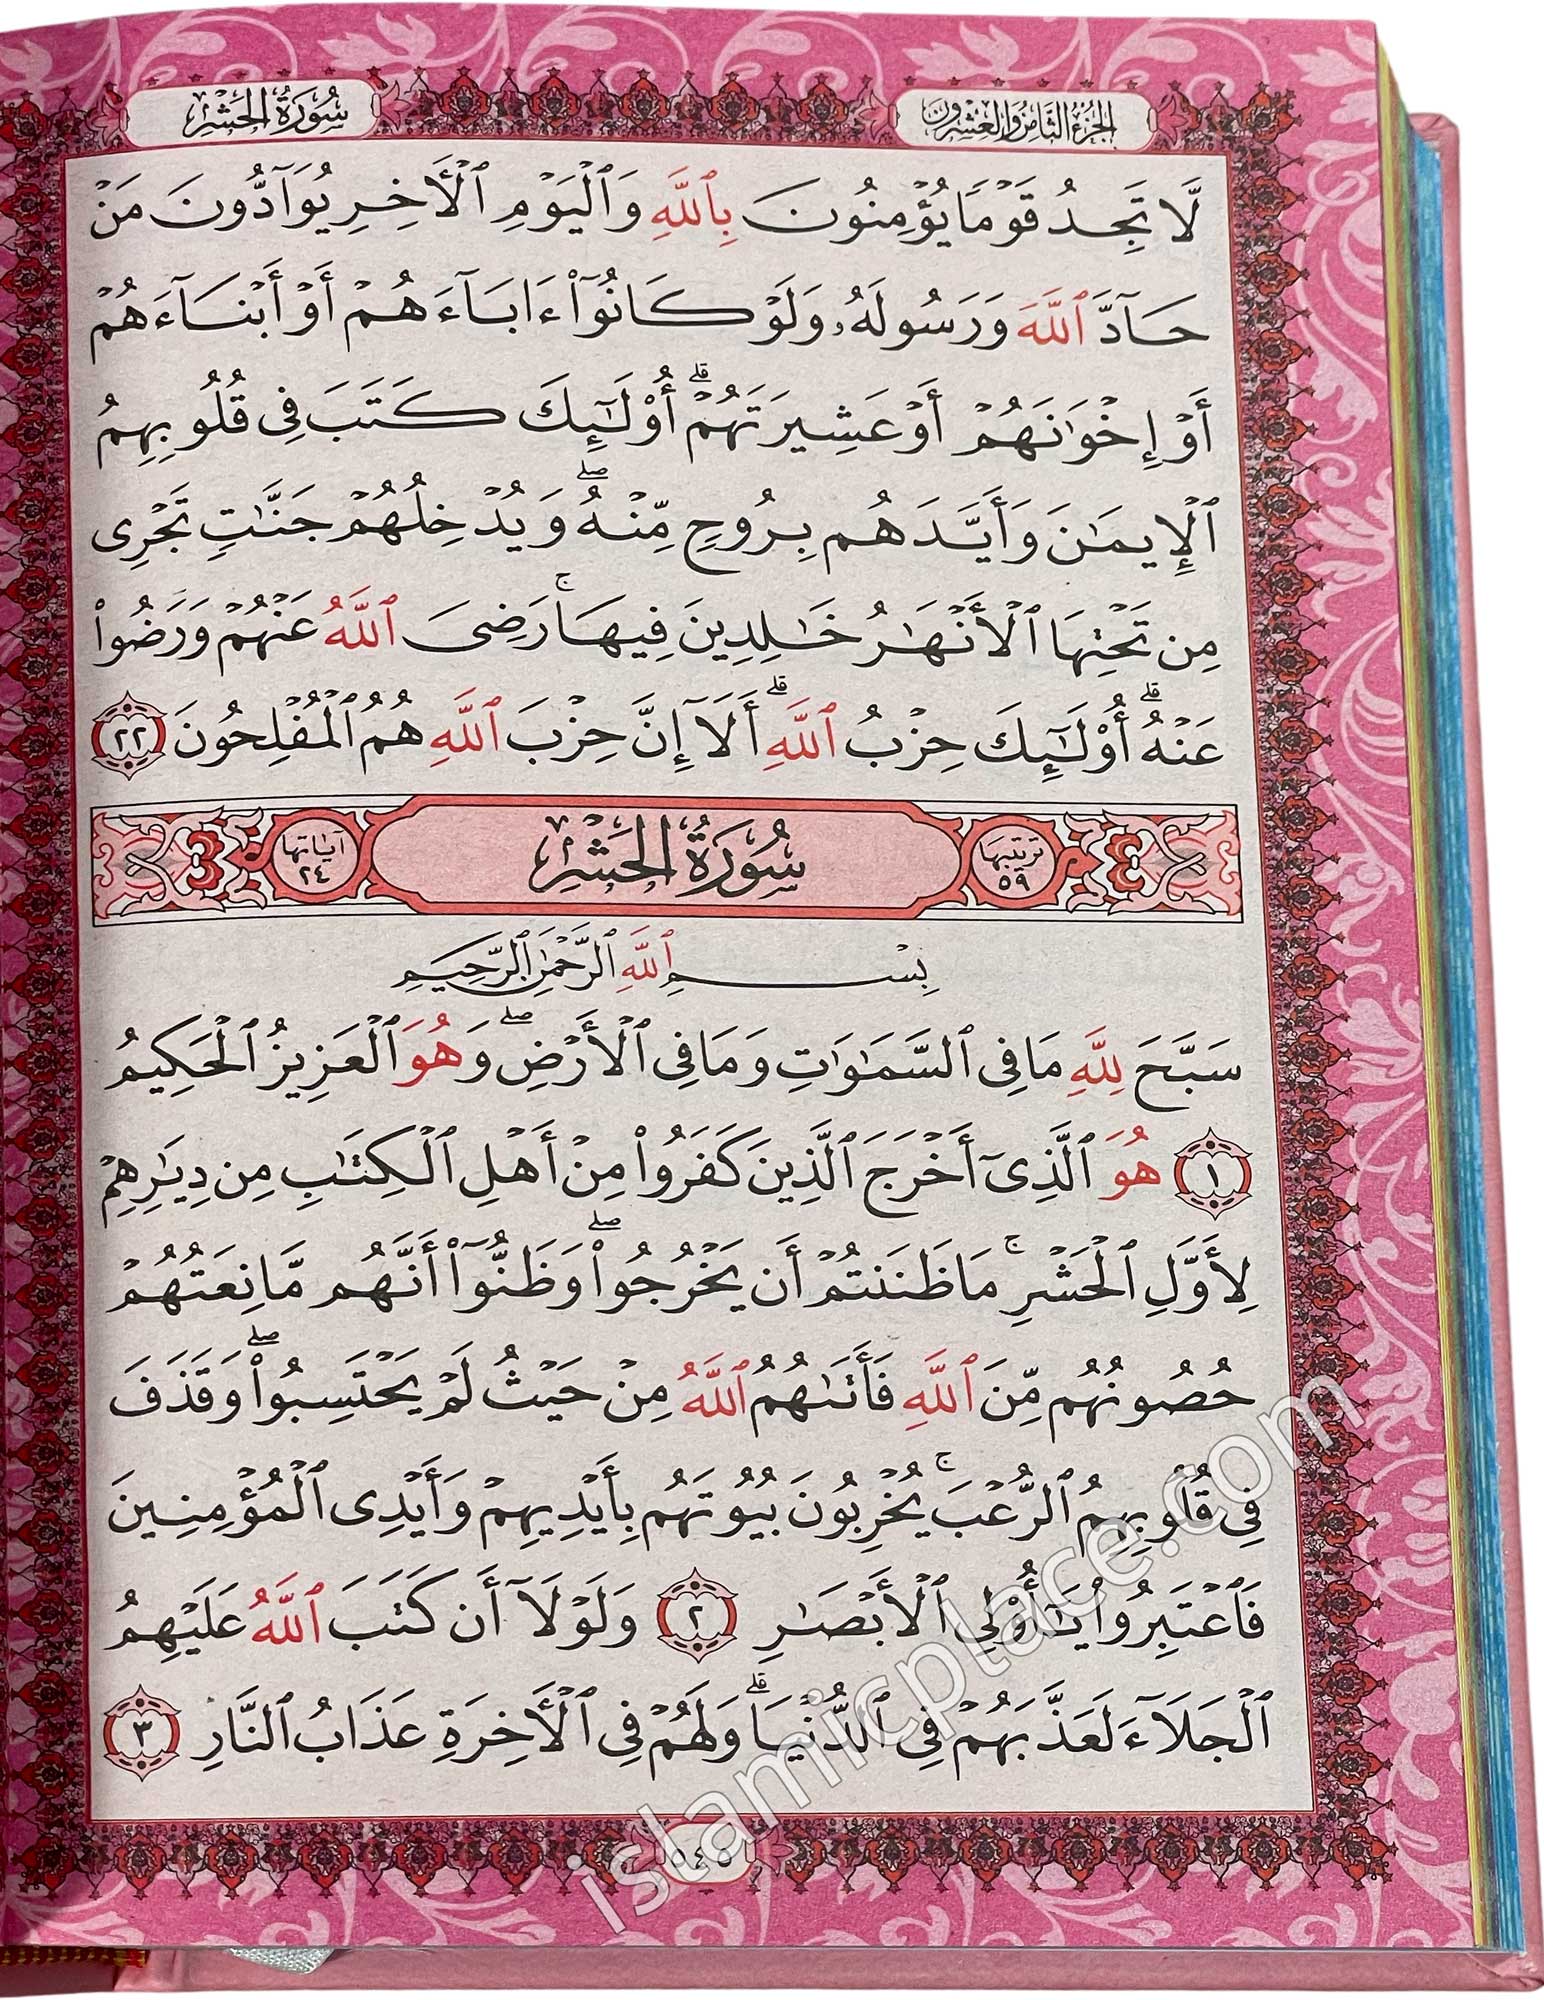 الجزء الثامن والعشرون
سورة الحشر
لَّا تَجِدُ قَوْمًا يُؤْمِنُونَ بِٱللَّهِ وَٱلْيَوْمِ ٱلْأَخِرِ يُوَآدُّونَ مَنْ
حَآدَّ ٱللَّهَ وَرَسُولَهُۥ وَلَوْ كَانُوٓا۟ ءَابَآءَهُمْ أَوْ أَبْنَآءَهُمْ
أَوْ إِخْوَٰنَهُمْ أَوْ عَشِيرَتَهُمْ ۚ أُو۟لَٰٓئِكَ كَتَبَ فِى قُلُوبِهِمُ
ٱلْإِيمَٰنَ وَأَيَّدَهُم بِرُوحٍ مِّنْهُ ۖ وَيُدْخِلُهُمْ جَنَّٰتٍ تَجْرِى
مِن تَحْتِهَا ٱلْأَنْهَٰرُ خَٰلِدِينَ فِيهَا ۚ رَضِىَ ٱللَّهُ عَنْهُمْ وَرَضُوا۟
عَنْهُ ۚ أُو۟لَٰٓئِكَ حِزْبُ ٱللَّهِ ۚ أَلَآ إِنَّ حِزْبَ ٱللَّهِ هُمُ ٱلْمُفْلِحُونَ ٢٢
ترتيبها ٥٩ سُورَةُ الحَشْرِ آياتها ٢٤
بِسْمِ ٱللَّهِ ٱلرَّحْمَٰنِ ٱلرَّحِيمِ
سَبَّحَ لِلَّهِ مَا فِى ٱلسَّمَٰوَٰتِ وَمَا فِى ٱلْأَرْضِ ۖ وَهُوَ ٱلْعَزِيزُ ٱلْحَكِيمُ
١ هُوَ ٱلَّذِىٓ أَخْرَجَ ٱلَّذِينَ كَفَرُوا۟ مِنْ أَهْلِ ٱلْكِتَٰبِ مِن دِيَٰرِهِمْ
لِأَوَّلِ ٱلْحَشْرِ ۚ مَا ظَنَنتُمْ أَن يَخْرُجُوا۟ ۖ وَظَنُّوٓا۟ أَنَّهُم مَّانِعَتُهُمْ
حُصُونُهُم مِّنَ ٱللَّهِ فَأَتَىٰهُمُ ٱللَّهُ مِنْ حَيْثُ لَمْ يَحْتَسِبُوا۟ ۖ وَقَذَفَ
فِى قُلُوبِهِمُ ٱلرُّعْبَ ۚ يُخْرِبُونَ بُيُوتَهُم بِأَيْدِيهِمْ وَأَيْدِى ٱلْمُؤْمِنِينَ
فَٱعْتَبِرُوا۟ يَٰٓأُو۟لِى ٱلْأَبْصَٰرِ ٢ وَلَوْلَآ أَن كَتَبَ ٱللَّهُ عَلَيْهِمُ
ٱلْجَلَآءَ لَعَذَّبَهُمْ فِى ٱلدُّنْيَا ۖ وَلَهُمْ فِى ٱلْأَخِرَةِ عَذَابُ ٱلنَّارِ ٣
٥٤٥
islamicplace.com